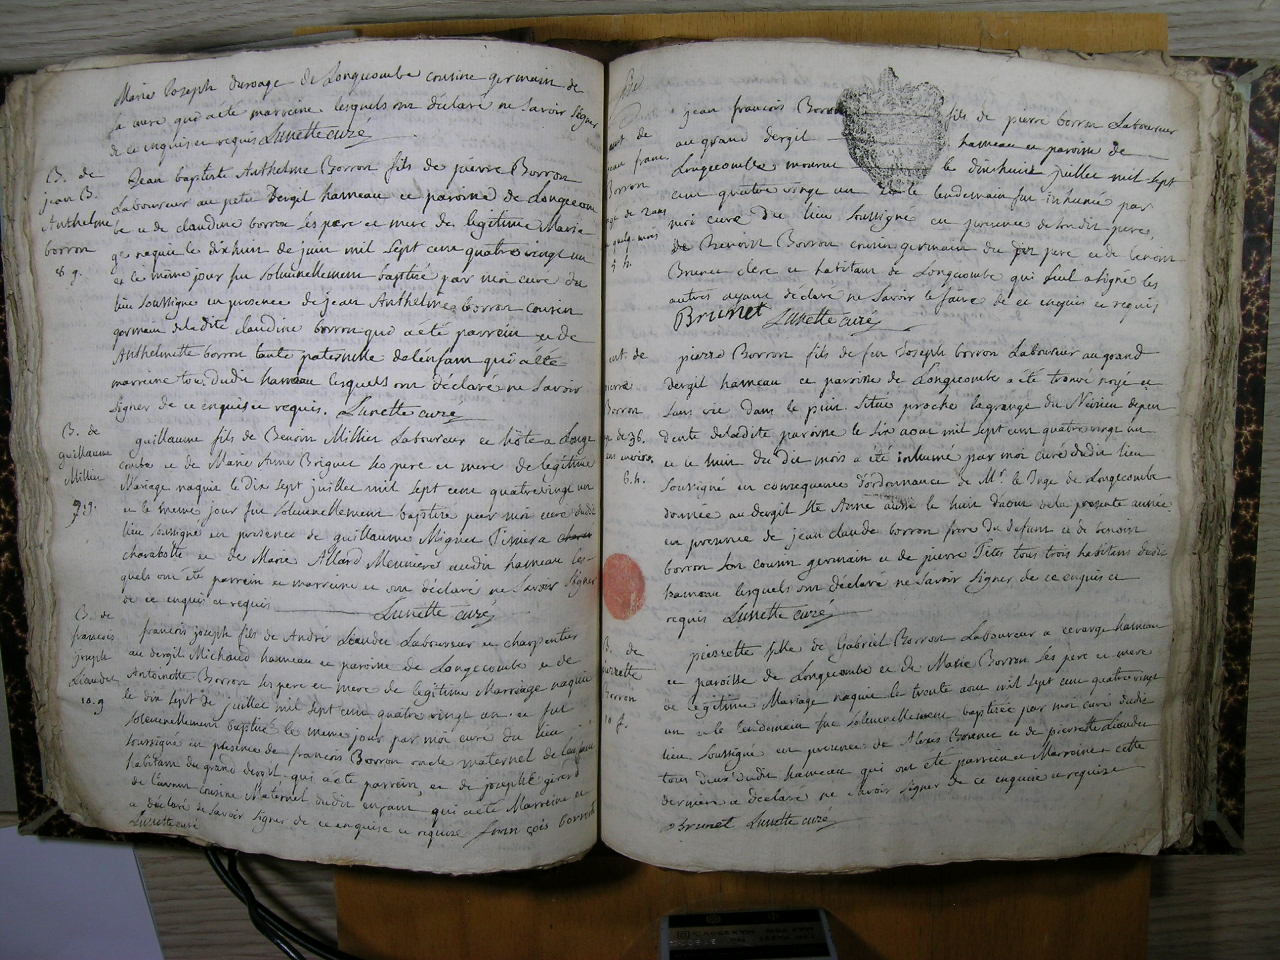 Marie Joseph durrage de Longecombe cousine germain de
la mere qui a été marraine lesquels ont déclaré ne savoir signer
de ce enquis et requis Lunette curé
B. de
jean B.
Anthelme
borron
8 g.
Jean baptiste Anthelme Borron fils de pierre Borron
Laboureur au petit Dergit hameau et paroisse de Longecom
be et de claudine borron ses pere et mere de legitime Maria
ge naquit le dix huit de juin mil sept cent quatre vingt un
et le même jour fut solemnellement baptisé par moi curé du
lieu soussigné en presence de jean Anthelme borron cousin
germain de la dite claudine borron qui a été parrein et de
Anthelmette borron tante paternelle de l'enfant qui a été
marreine tous dudit hameau lesquels ont déclaré ne savoir
signer de ce enquis et requis. Lunette curé
B. de
guillaume
Millien
9. g.
guillaume fils de Benoit Millien Laboureur et hôte a Longe
combe et de Marie Anne Briquet ses pere et mere de legitime
Mariage naquit le Dix sept juillet mil sept cent quatre vingt un
et le même jour fut solemnellement baptisé par moi curé dudit
lieu soussigné en presence de guillaume Mignet
charabotte et de Marie Allard Meuniere audit hameau les-
quels ont été parrein et marreine et ont déclaré ne savoir signer
de ce enquis et requis Lunette curé
B. de
francois
joseph
Leaudet
10. g
francois joseph fils de André Leaudet Laboureur et charpentier
au dergit Michaud hameau et paroisse de Longecombe et de
Antoinette Borron ses pere et mere de legitime Marriage naquit
le dix sept de juillet mil sept cent quatre vingt un et fut
solemnellement baptisé le meme jour par moi curé du lieu
soussigné en presence de francois Borron oncle maternel de l'enfant
habitant du grand dergit qui a été parrein et de josephte girod
de l'avant cousine Maternel dudit enfant qui a été Marreine et
a déclaré ne savoir signer de ce enquise et requise fran çois borron
Lunette curé
ent de
jean franc.
Borron
age de 2 ans
et quelq. mois
5 h.
jean francois Borron fils de pierre borron Laboureur
au grand dergit hameau et paroisse de
Longecombe mourut le dix huit juillet mil sept
cent quatre vingt un et le lendemain fut inhumé par
moi curé du lieu soussigné en presence de sondit pere,
de Benoit Borron cousin germain du dit pere et de benoit
Brunet clerc et habitant de Longecombe qui seul a signé les
autres ayant déclaré ne savoir le faire de ce enquis et requis
Brunet Lunette curé
ent. de
pierre
Borron
age de 36.
ans environ.
6. h.
pierre Borron fils de feu Joseph borron Laboureur au grand
dergit hameau et paroisse de Longecombe a été trouvé noyé et
sans vie dans le puit situé proche la grange du Nevieu
de la dite paroisse le six aout mil sept cent quatre vingt un
et le huit du dit mois a été inhumé par moi curé dudit lieu
soussigné en consequence d'ordonnance de Mr. le Juge de Longecombe
donnée au dergit Ste Anne aussi le huit d'aout de la presente année
en presence de jean claude borron frere du defunt et de benoit
borron son cousin germain et de pierre Tetes tous trois habitans dudit
hameau lesquels ont déclaré ne savoir signer de ce enquis et
requis Lunette curé
B. de
pierrette
Borron
10 f.
pierrette fille de Gabriel Borron Laboureur a cevarge hameau
et paroisse de Longecombe et de Marie Borron ses pere et mere
de legitime Mariage naquit le trente aout mil sept cent quatre vingt
un et le lendemain fut solemnellement baptisée par moi curé dudit
lieu soussigné en presence de Alexis Brunet et de pierrette Leaudet
tous deux dudit hameau qui ont été parrein et Marraine cette
derniere a déclaré ne savoir signer de ce enquise et requise
Brunet Lunette curé